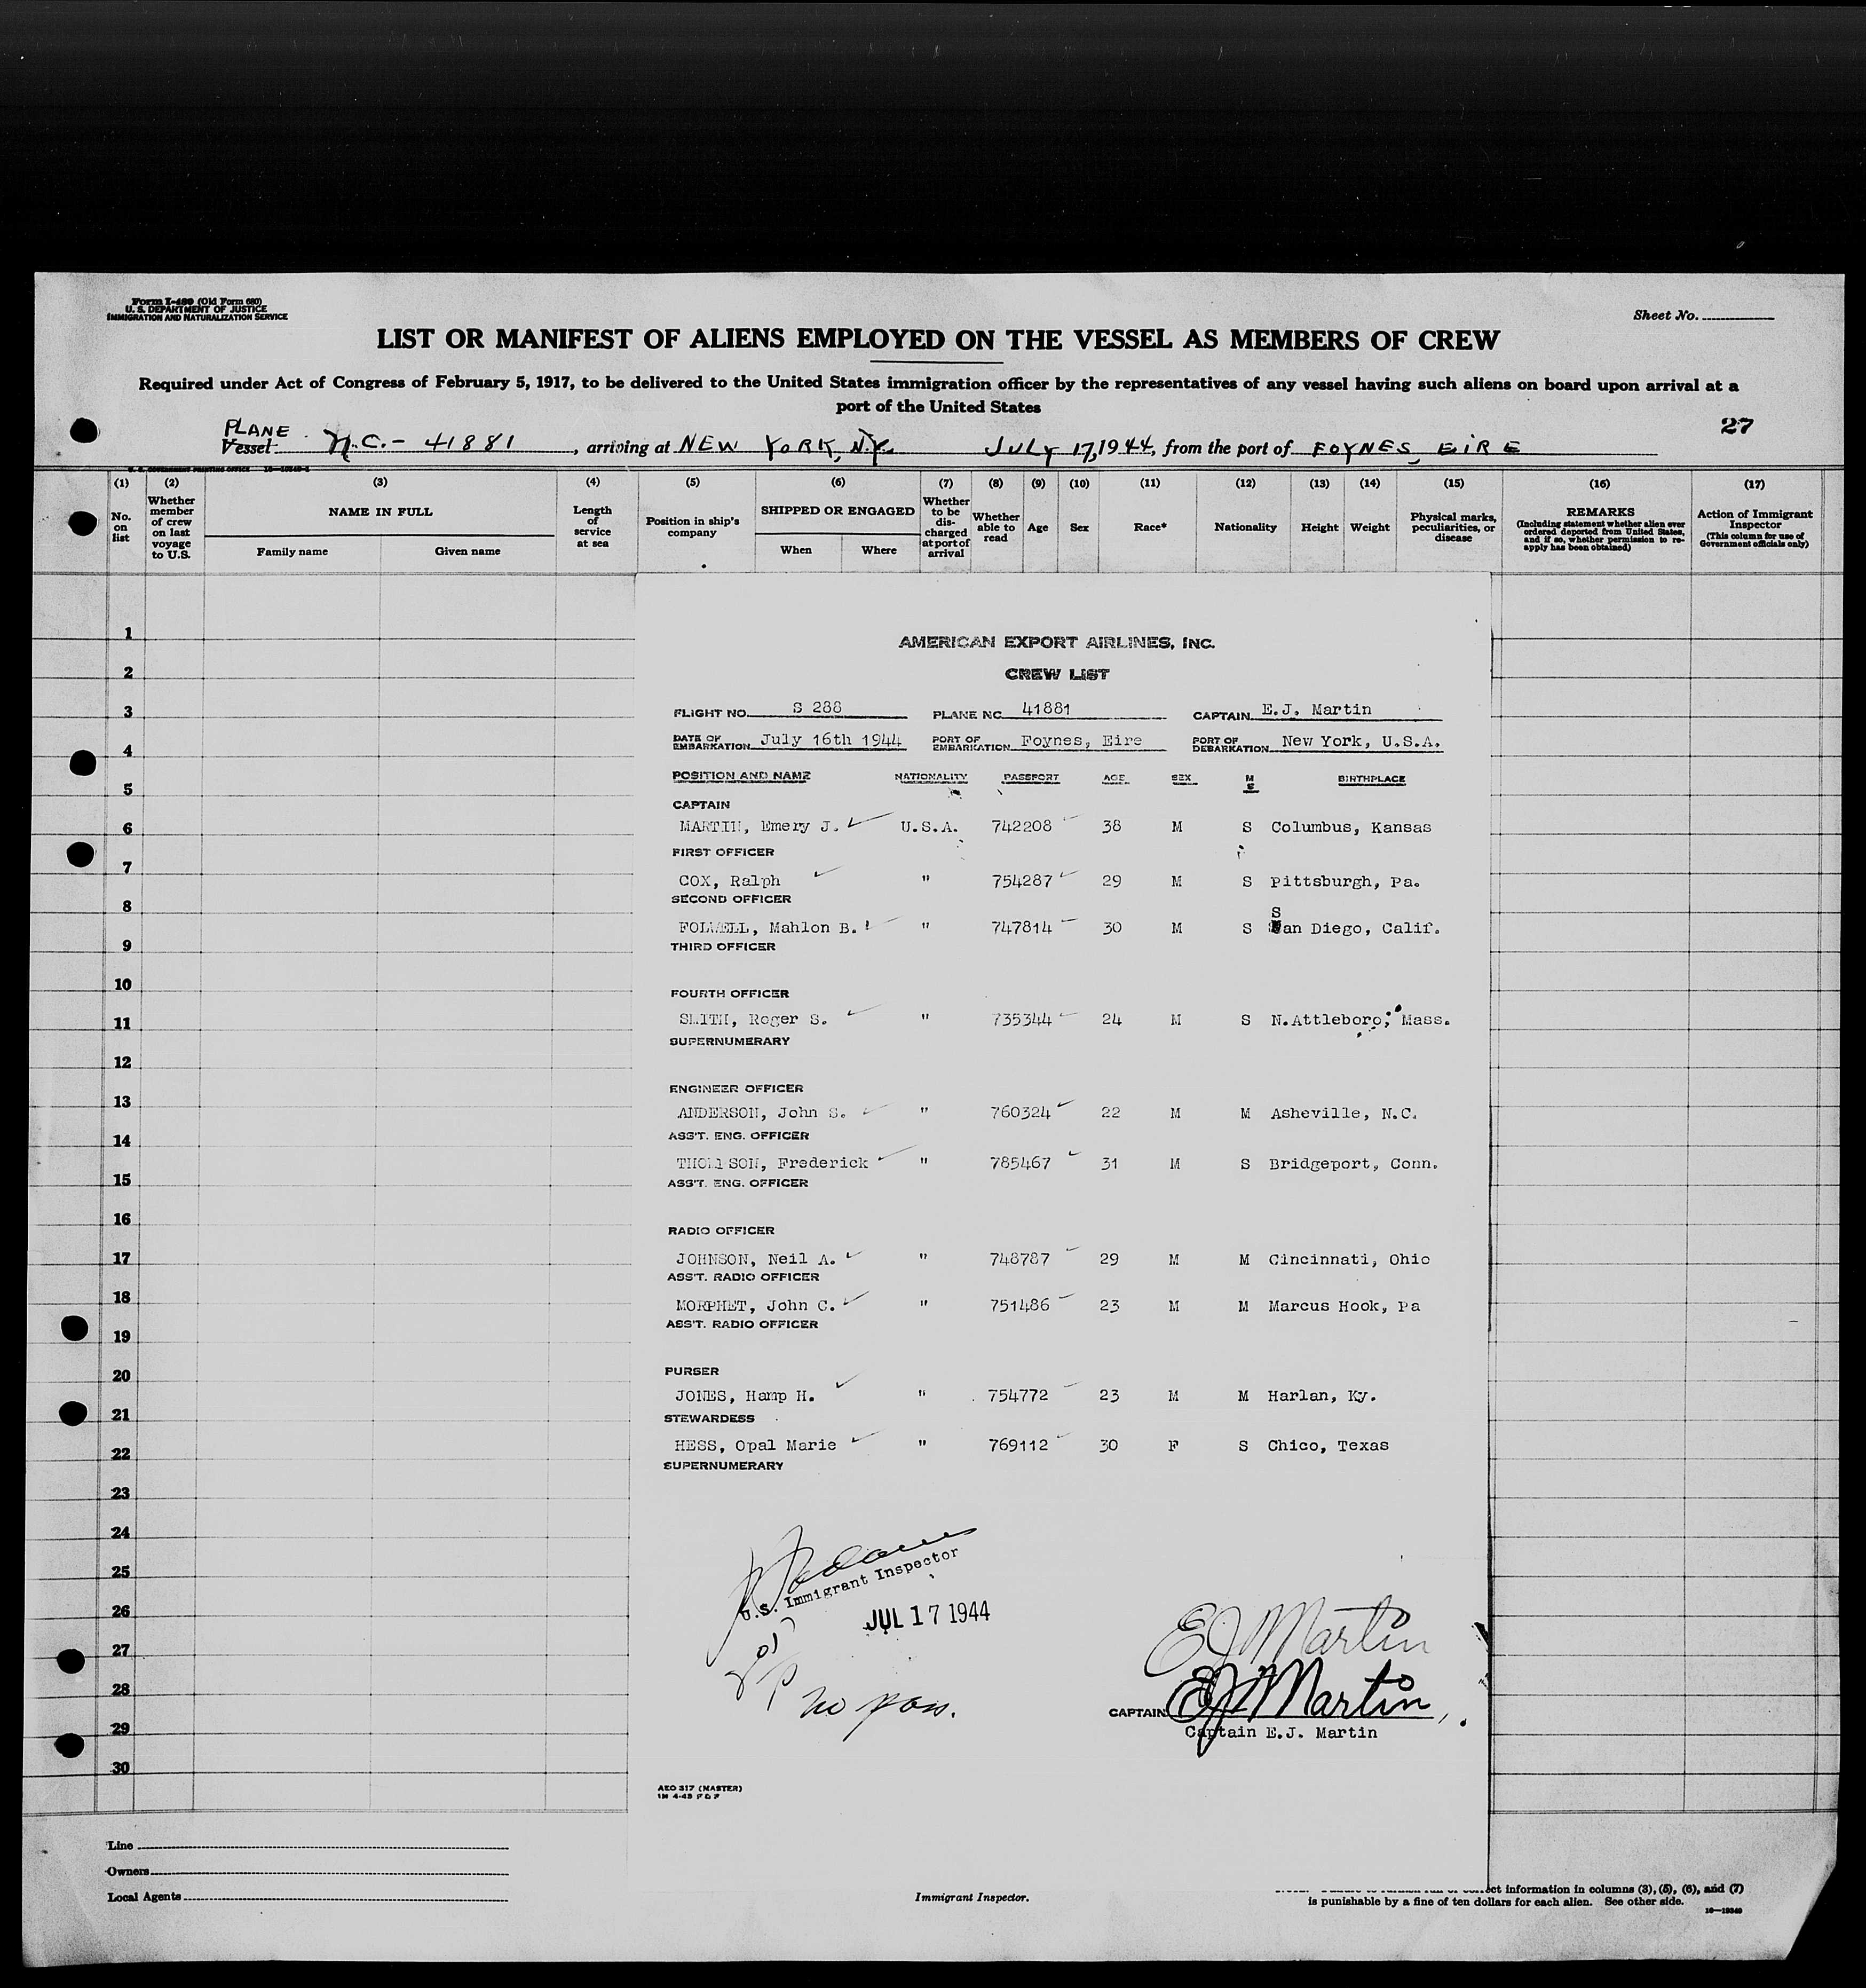 Form I-480 (Old Form 680)
U. S. DEPARTMENT OF JUSTICE
IMMIGRATION AND NATURALIZATION SERVICE
Sheet No.
LIST OR MANIFEST OF ALIENS EMPLOYED ON THE VESSEL AS MEMBERS OF CREW
Required under Act of Congress of February 5, 1917, to be delivered to the United States immigration officer by the representatives of any vessel having such aliens on board upon arrival at a
port of the United States
27
PLANE
Vessel N.C.- 41881, arriving at NEW YORK, N.Y. JULY 17, 1944, from the port of FOYNES, EIRE
(1) (2) (3) (4) (5) (6) (7) (8) (9) (10) (11) (12) (13) (14) (15) (16) (17)
No. on list
Whether member of crew on last voyage to U.S.
NAME IN FULL
Family name Given name
Length of service at sea
Position in ship's company
SHIPPED OR ENGAGED
When Where
Whether to be discharged at port of arrival
Whether able to read
Age
Sex
Race*
Nationality
Height
Weight
Physical marks, peculiarities, or disease
REMARKS
(Including statement whether alien ever ordered deported from United States, and if so, whether permission to re-apply has been obtained)
Action of Immigrant Inspector
(This column for use of Government officials only)
1
2
3
4
5
6
7
8
9
10
11
12
13
14
15
16
17
18
19
20
21
22
23
24
25
26
27
28
29
30
AMERICAN EXPORT AIRLINES, INC.
CREW LIST
FLIGHT NO. S 288 PLANE NC 41881 CAPTAIN E.J. Martin
DATE OF EMBARKATION July 16th 1944 PORT OF EMBARKATION Foynes, Eire PORT OF DEBARKATION New York, U.S.A.
POSITION AND NAME NATIONALITY PASSPORT AGE SEX M S BIRTHPLACE
CAPTAIN
MARTIN, Emery J. U.S.A. 742208 38 M S Columbus, Kansas
FIRST OFFICER
COX, Ralph " 754287 29 M S Pittsburgh, Pa.
SECOND OFFICER
FOLWELL, Mahlon B. " 747814 30 M S San Diego, Calif.
THIRD OFFICER
FOURTH OFFICER
SMITH, Roger S. " 735344 24 M S N.Attleboro, Mass.
SUPERNUMERARY
ENGINEER OFFICER
ANDERSON, John S. " 760324 22 M M Asheville, N.C.
ASS'T. ENG. OFFICER
THOMSON, Frederick " 785467 31 M S Bridgeport, Conn.
ASS'T. ENG. OFFICER
RADIO OFFICER
JOHNSON, Neil A. " 748787 29 M M Cincinnati, Ohio
ASS'T. RADIO OFFICER
MORPHET, John C. " 751486 23 M M Marcus Hook, Pa
ASS'T. RADIO OFFICER
PURSER
JONES, Hamp H. " 754772 23 M M Harlan, Ky.
STEWARDESS
HESS, Opal Marie " 769112 30 F S Chico, Texas
SUPERNUMERARY
U.S. Immigrant Inspector
JUL 17 1944
no pass.
EJ Martin
CAPTAIN EJ Martin
Captain E.J. Martin
AEO 317 (MASTER)
1M 4-43 P & P
Line
Owners
Local Agents
Immigrant Inspector.
correct information in columns (3), (5), (6), and (7)
is punishable by a fine of ten dollars for each alien. See other side.